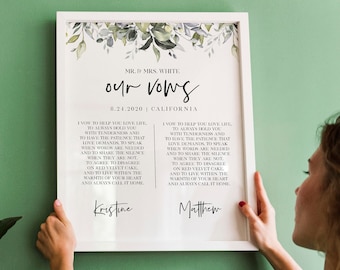 MR. & MRS. WHITE
our vows
8.24.2026 | CALIFORNIA
I VOW TO HELP YOU LOVE LIFE,
TO ALWAYS HOLD YOU
WITH TENDERNESS AND
TO HAVE THE PATIENCE THAT
LOVE DEMANDS, TO SPEAK
WHEN WORDS ARE NEEDED
AND TO SHARE THE SILENCE
WHEN THEY ARE NOT,
TO AGREE TO DISAGREE
ON RED VELVET CAKE,
AND TO LIVE WITHIN THE
WARMTH OF YOUR HEART
AND ALWAYS CALL IT HOME.
Kristine
I VOW TO HELP YOU LOVE LIFE,
TO ALWAYS HOLD YOU
WITH TENDERNESS AND
TO HAVE THE PATIENCE THAT
LOVE DEMANDS, TO SPEAK
WHEN WORDS ARE NEEDED
AND TO SHARE THE SILENCE
WHEN THEY ARE NOT,
TO AGREE TO DISAGREE
ON RED VELVET CAKE,
AND TO LIVE WITHIN THE
WARMTH OF YOUR HEART
AND ALWAYS CALL IT HOME.
Matthew